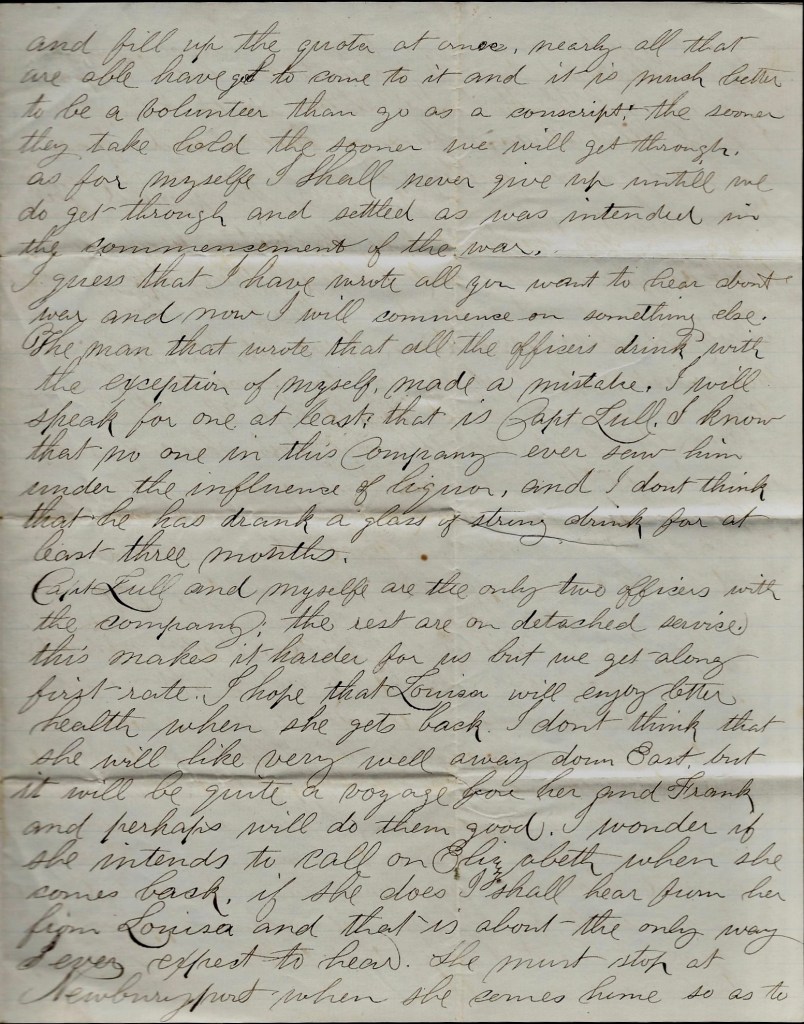 and fill up the quota at once, nearly all that
are able have got to come to it and it is much better
to be a volunteer than go as a conscript: the sooner
they take hold the sooner we will get through.
as for myselfe I shall never give up untill we
do get through and settled as was intended in
the commencement of the war.
I guess that I have wrote all you want to hear about
war and now I will commence on something else.
The man that wrote that all the officers drink with
the exception of myself, made a mistake. I will
speak for one at least; that is Capt Lull. I know
that no one in this Company ever saw him
under the influence of liquor, and I dont think
that he has drank a glass of strong drink for at
least three months.
Capt Lull and myselfe are the only two officers with
the company; the rest are on detached service.
this makes it harder for us but we get along
first-rate. I hope that Louisa will enjoy better
health when she gets back. I dont think that
she will like very well away down East, but
it will be quite a voyage for her and Frank
and perhaps will do them good. I wonder if
she intends to call on Elizabeth when she
comes back, if she does I shall hear from her
from Louisa and that is about the only way
I ever expect to hear. She must stop at
Newburyport when she comes home so as to